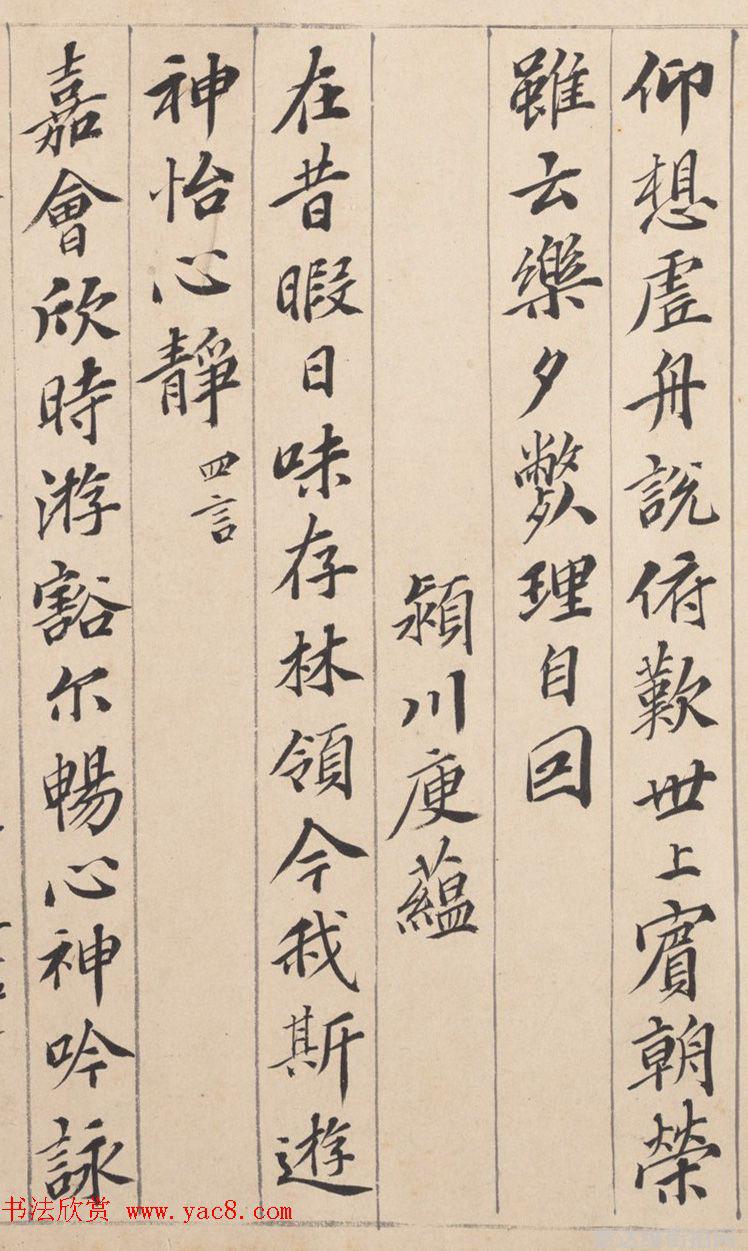 仰想虛舟說俯歎世上賓朝榮
雖云樂夕弊理自回
潁川庾蘊
在昔暇日味存林領今我斯遊
神怡心靜
四言
嘉會欣時游豁尔暢心神吟詠
书法欣赏 www.yac8.com